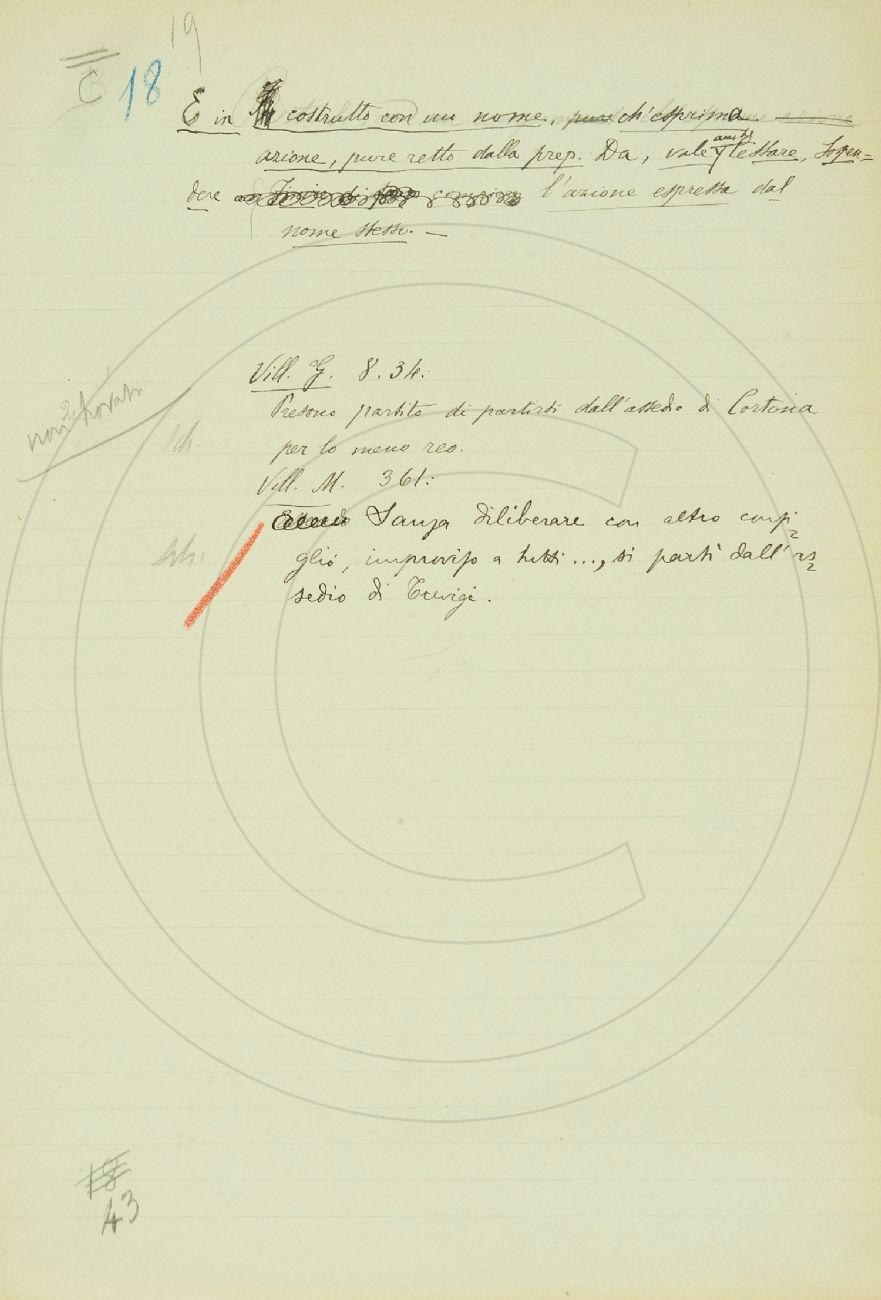 19
C 18
E in costrutto con un nome, pure ch'esprima
azione, pure retto dalla prep. Da, vale anche Cessare, Sospen=
dere l'azione espressa dal
nome stesso. —
Vill. G. 8. 34:
non trovato
Presono partito di partirsi dall'assedio di Cortona
per lo meno reo.
Vill. M. 361:
Sanza diliberare con altro consi-
glio, improviso a tutti..., si partì dall'as-
sedio di Trevigi.
18
43